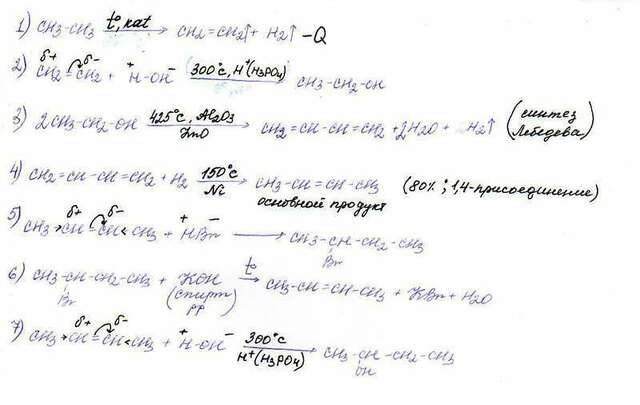 1) CH3-CH3 t°, kat → CH2=CH2↑ + H2↑ -Q
2) δ+ CH2=CH2 δ- + +H-OH- 300°C, H+(H3PO4) → CH3-CH2-OH
3) 2CH3-CH2-OH 425°C, Al2O3 ZnO → CH2=CH-CH=CH2 + 2H2O + H2↑ (синтез Лебедева)
4) CH2=CH-CH=CH2 + H2 150°C Ni → CH3-CH=CH-CH3 (80%; 1,4-присоединение)
основной продукт
5) CH3→CH=CH←CH3 δ+ δ- + +HBr- → CH3-CH-CH2-CH3
Br
6) CH3-CH-CH2-CH3 + KOH t° → CH3-CH=CH-CH3 + KBr + H2O
Br (спирт. рр)
7) CH3→CH=CH←CH3 δ+ δ- + +H-OH- 300°C H+(H3PO4) → CH3-CH-CH2-CH3
OH